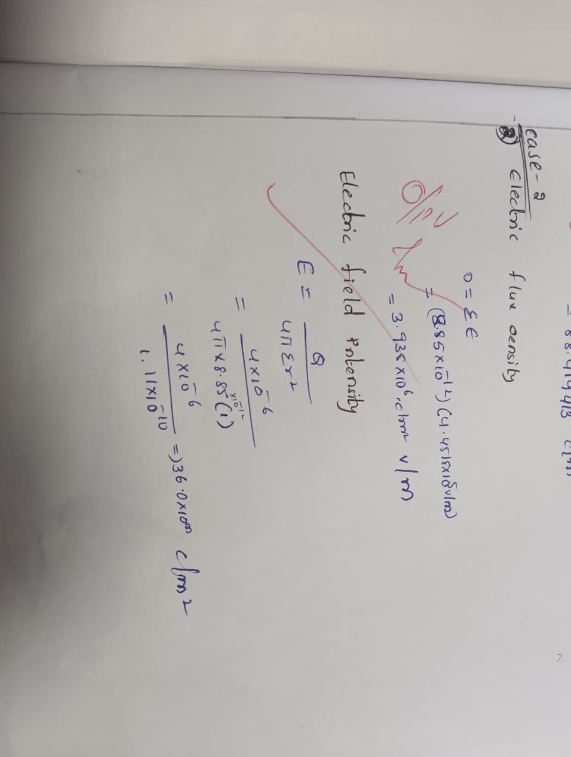 case-2
2) Electric flux density
D = ε E
= (8.85×10⁻¹²) (4.4515×10⁵v/m)
= 3.935×10⁶ c/m² v/m
Electric field intensity
E = Q / 4πεr²
= 4×10⁻⁶ / 4π×8.85×10⁻¹²(1)
= 4×10⁻⁶ / 1.11×10⁻¹⁰ => 36.0×10 c/m²
2